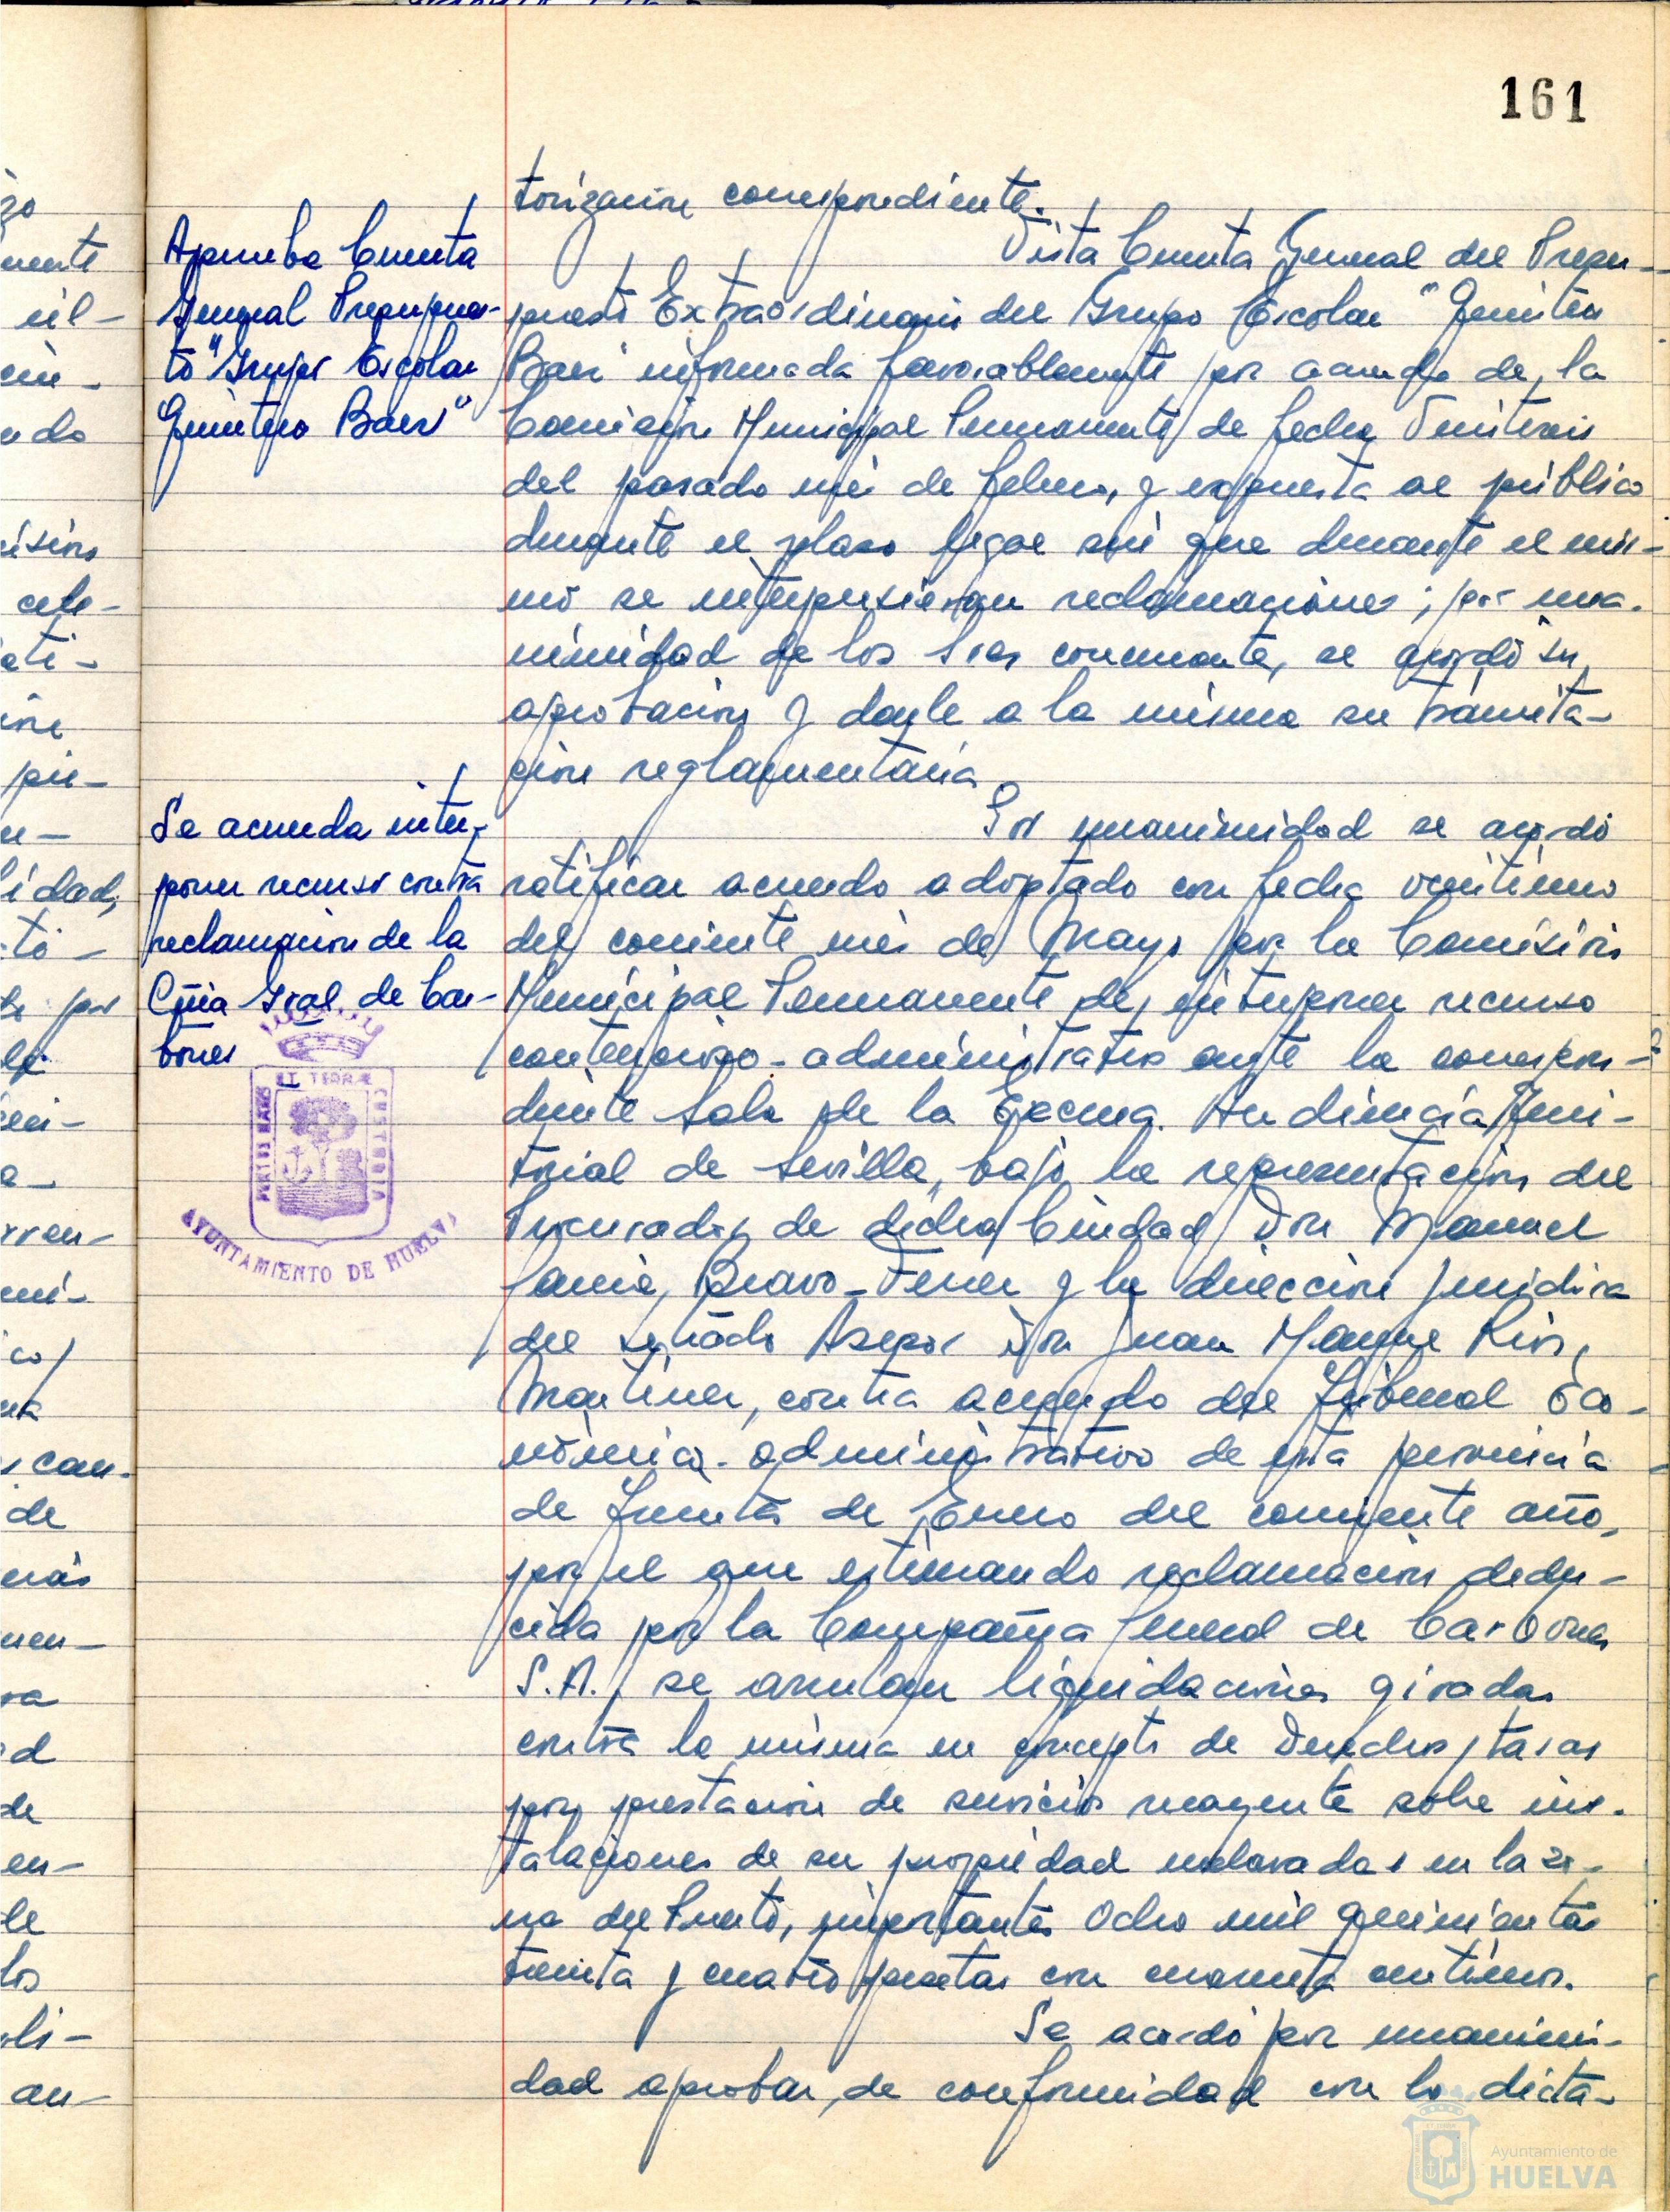 161
torización correspondiente.
Aprueba Cuenta
General Presupues-
to "Grupo Escolar
Quintero Baez"
Vista Cuenta General del Presu-
puesto Extraordinario del Grupo Escolar "Quintero
Baez informada favorablemente por acuerdo de la
Comisión Municipal Permanente de fecha Veintiseis
del pasado mes de febrero, y expuesta al público
durante el plazo legal sin que durante el mis-
mo se interpusieran reclamaciones; por una-
nimidad de los Sres concurrentes, se acordó su
aprobación y darle a la misma su tramita-
ción reglamentaria
Se acuerda inter-
poner recurso contra
reclamación de la
Cñia Gral de Car-
bones
Por unanimidad se acordó
ratificar acuerdo adoptado con fecha veintiuno
del corriente mes de Mayo por la Comisión
Municipal Permanente de interponer recurso
contencioso-administrativo ante la correspon-
diente Sala de la Excma. Audiencia Terri-
torial de Sevilla, bajo la representación del
Procurador de dicha Ciudad Don Manuel
García Bravo-Ferrer y la dirección jurídica
del Letrado Asesor Don Juan Manuel Rios
Martinez, contra acuerdo del Tribunal Eco-
nómico-administrativo de esta provincia
de treinta de Enero del corriente año,
por el que estimando reclamación dedu-
cida por la Compañia General de Carbones
S.A., se anulan liquidaciones giradas
contra la misma en concepto de Derechos y tasas
por prestacion de servicios recayente sobre ins-
talaciones de su propiedad enclavadas en la zo-
na del Puerto, importantes Ocho mil quinientas
treinta y cuatro pesetas con cincuenta centimos.
Se acordó por unanimi-
dad aprobar, de conformidad con lo dicta-
PORTUS MARIS
ET TERRAE
CUSTODIA
AYUNTAMIENTO DE HUELVA
Ayuntamiento de
HUELVA